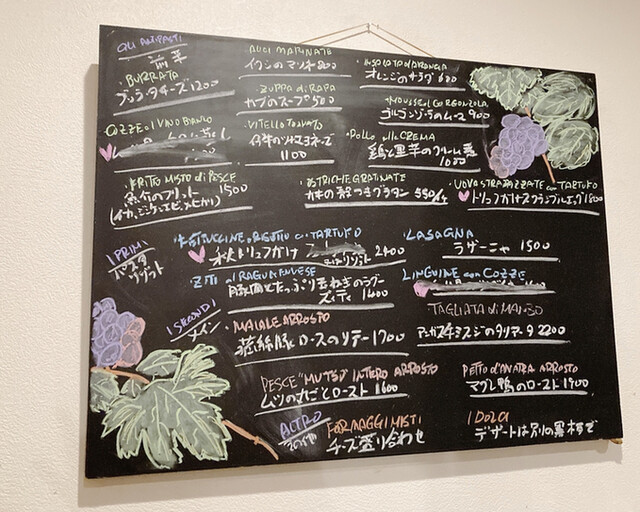 GLI ANTIPASTI
前菜
・BURRATA
ブッラータチーズ 1200
COZZE al VINO BIANCO
・FRITTO MISTO di PESCE
魚介のフリット 1500
ALICI MARINATE
イワシのマリネ 800
・ZUPPA di RAPA
カブのスープ 500
・VITELLO TONNATO
仔牛のツナマヨネーズ
1100
・OSTRICHE GRATINATE
カキの殻つきグラタン 550/1
・INSALATA di ARANCIA
オレンジのサラダ
・MOUSSE al GORGONZOLA
ゴルゴンゾーラのムース 900
・POLLO alla CREMA
鶏と里芋のクリーム煮
・UOVA STRAPAZZATE con TARTUFO
トリュフがけスクランブルエッグ 1800
I PRIMI
パスタ
リゾット
・FETTUCCINE o RISOTTO con TARTUFO
トリュフがけ 2400
・ZITI al RAGU GENOVESE
豚肉とたっぷり玉ねぎのラグー
ズィティ 1400
・LASAGNA
ラザーニャ 1500
LINGUINE con COZZE
I SECONDI
メイン
・MAIALE ARROSTO
豚ロースのソテー 1700
TAGLIATA di MANZO
タリアータ 2200
PESCE "MUTSU" INTERO ARROSTO
ムツの丸ごとロースト 1600
PETTO d'ANATRA ARROSTO
マグレ鴨のロースト 1900
ALTRO
その他
FORMAGGI MISTI
チーズ盛り合わせ
I DOLCI
デザートは別の黒板で